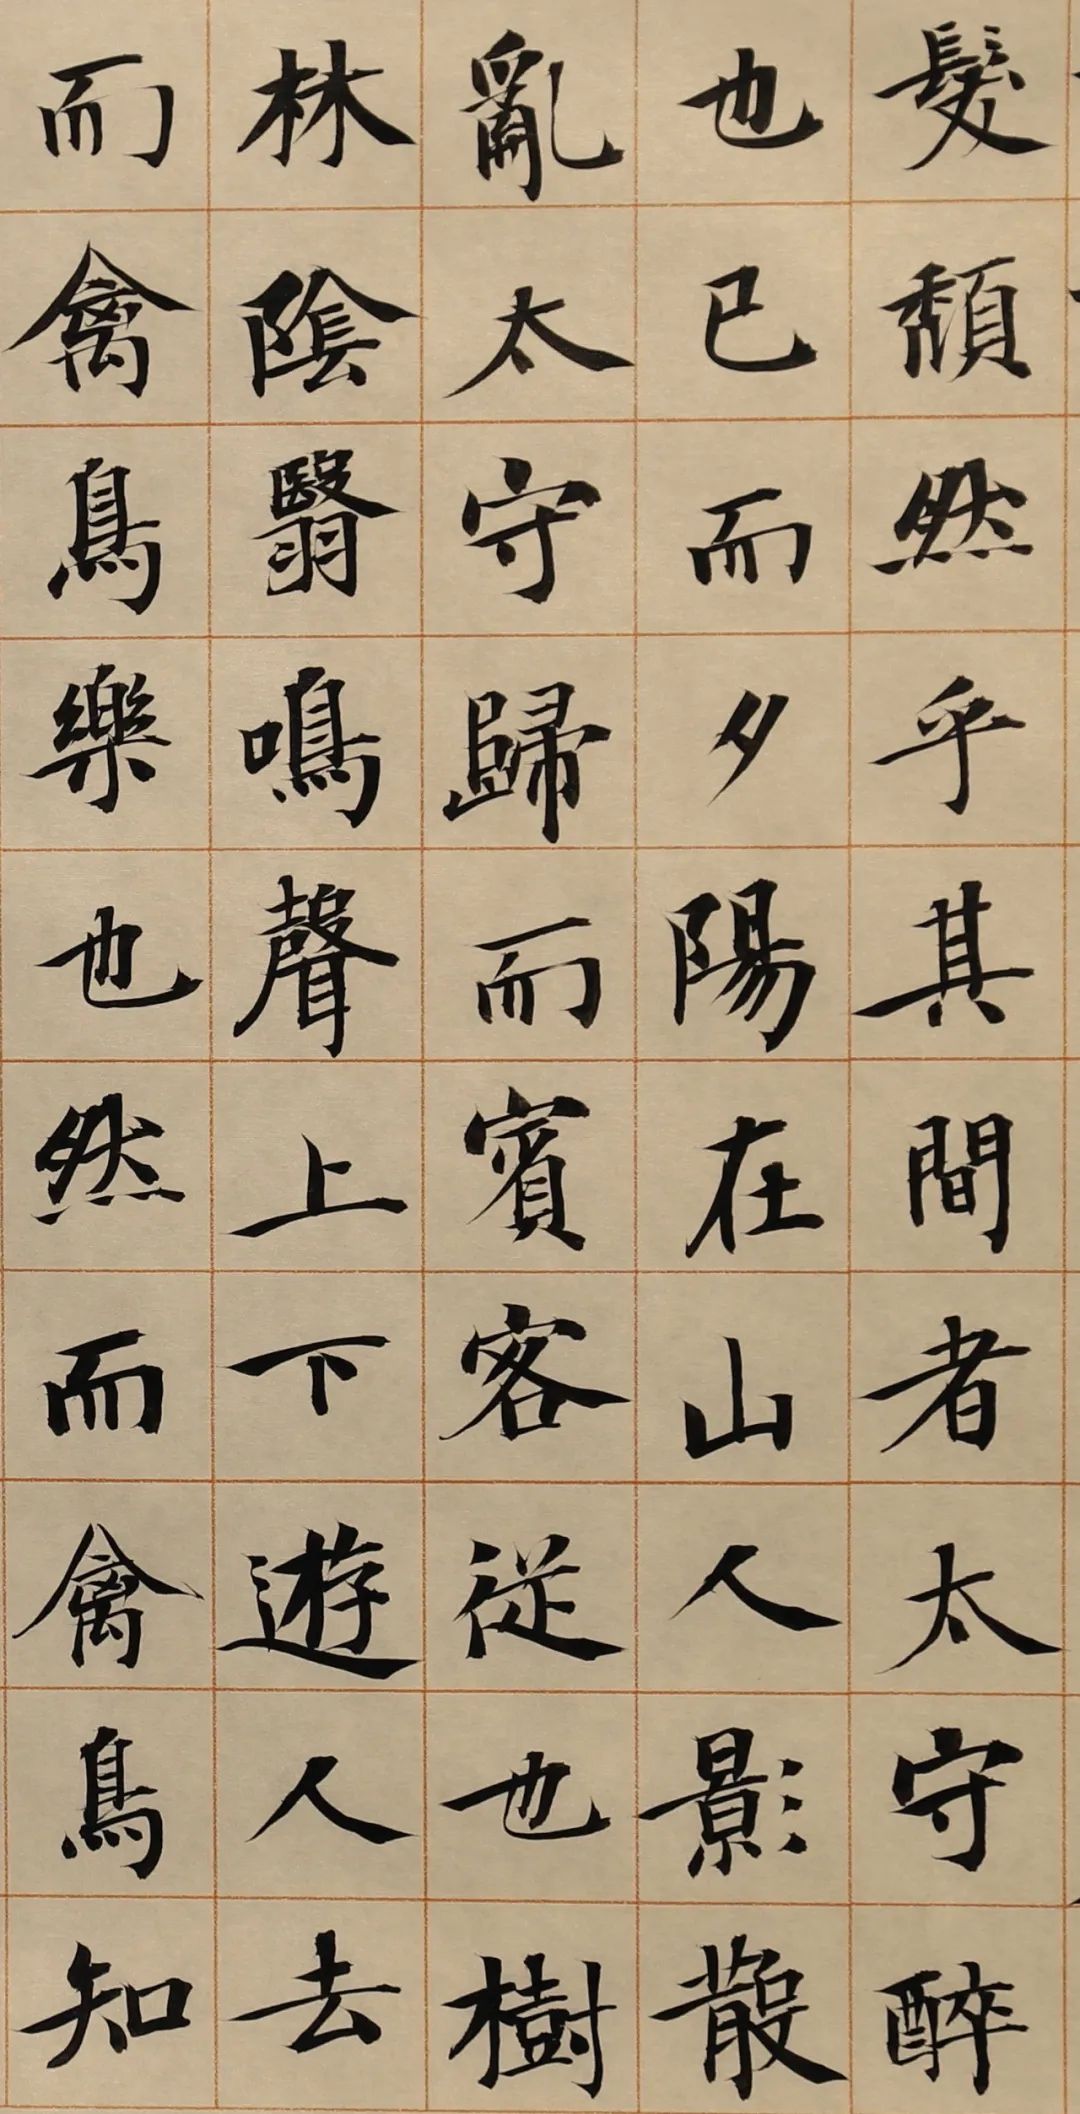 髮頹然乎其間者太守醉
也已而夕陽在山人影散
亂太守歸而賓客從也樹
林陰翳鳴聲上下遊人去
而禽鳥樂也然而禽鳥知